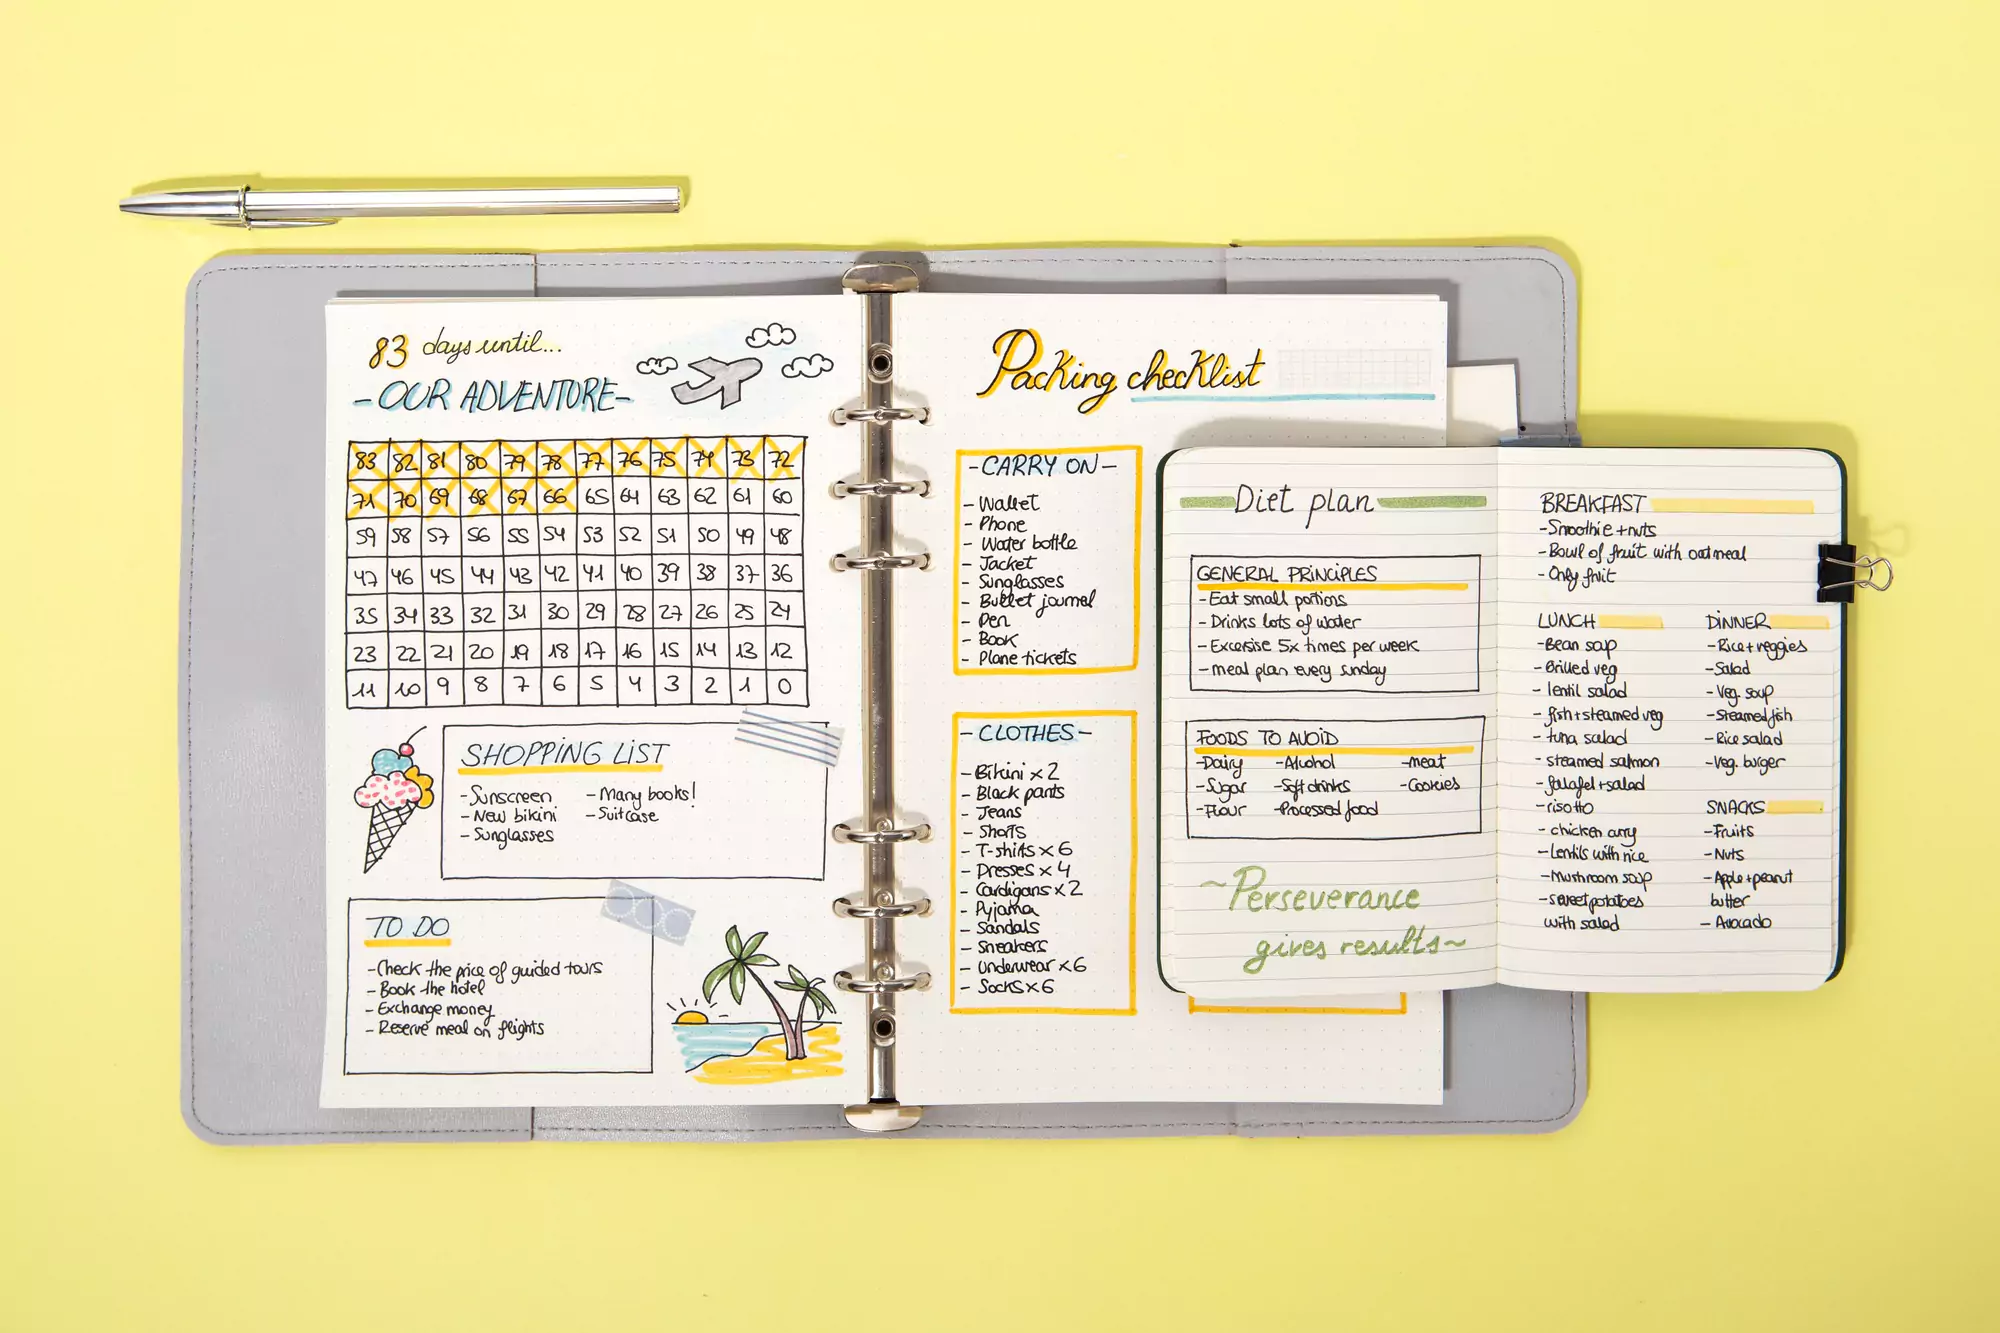 83 days until...
-OUR ADVENTURE-
83 82 81 80 79 78 77 76 75 74 73 72
71 70 69 68 67 66 65 64 63 62 61 60
59 58 57 56 55 54 53 52 51 50 49 48
47 46 45 44 43 42 41 40 39 38 37 36
35 34 33 32 31 30 29 28 27 26 25 24
23 22 21 20 19 18 17 16 15 14 13 12
11 10 9 8 7 6 5 4 3 2 1 0
SHOPPING LIST
-Sunscreen -Many books!
-New bikini -Suitcase
-Sunglasses
TO DO
-Check the price of guided tours
-Book the hotel
-Exchange money
-Reserve meal on flights
Packing checklist
-CARRY ON-
- Wallet
- Phone
- Water bottle
- Jacket
- Sunglasses
- Bullet journal
- Pen
- Book
- Plane tickets
-CLOTHES-
- Bikini x 2
- Black pants
- Jeans
- Shorts
- T-shirts x 6
- Dresses x 4
- Cardigans x 2
- Pyjama
- Sandals
- Sneakers
- Underwear x 6
- Socks x 6
Diet plan
GENERAL PRINCIPLES
-Eat small portions
-Drinks lots of water
-Excersise 5x times per week
-meal plan every sunday
FOODS TO AVOID
-Dairy -Alcohol -meat
-Sugar -Soft drinks -Cookies
-Flour -Processed food
~Perseverance
gives results~
BREAKFAST
-Smoothie + nuts
-Bowl of fruit with oatmeal
-Only fruit
LUNCH
-Bean soup
-Grilled veg
-lentil salad
-fish + steamed veg
-tuna salad
-steamed salmon
-falafel + salad
-risotto
-chicken curry
-Lentils with rice
-Mushroom soup
-sweet potatoes
with salad
DINNER
-Rice + veggies
-Salad
-Veg. soup
-Steamed fish
-Rice salad
-Veg. burger
SNACKS
-Fruits
-Nuts
-Apple + peanut
butter
-Avocado